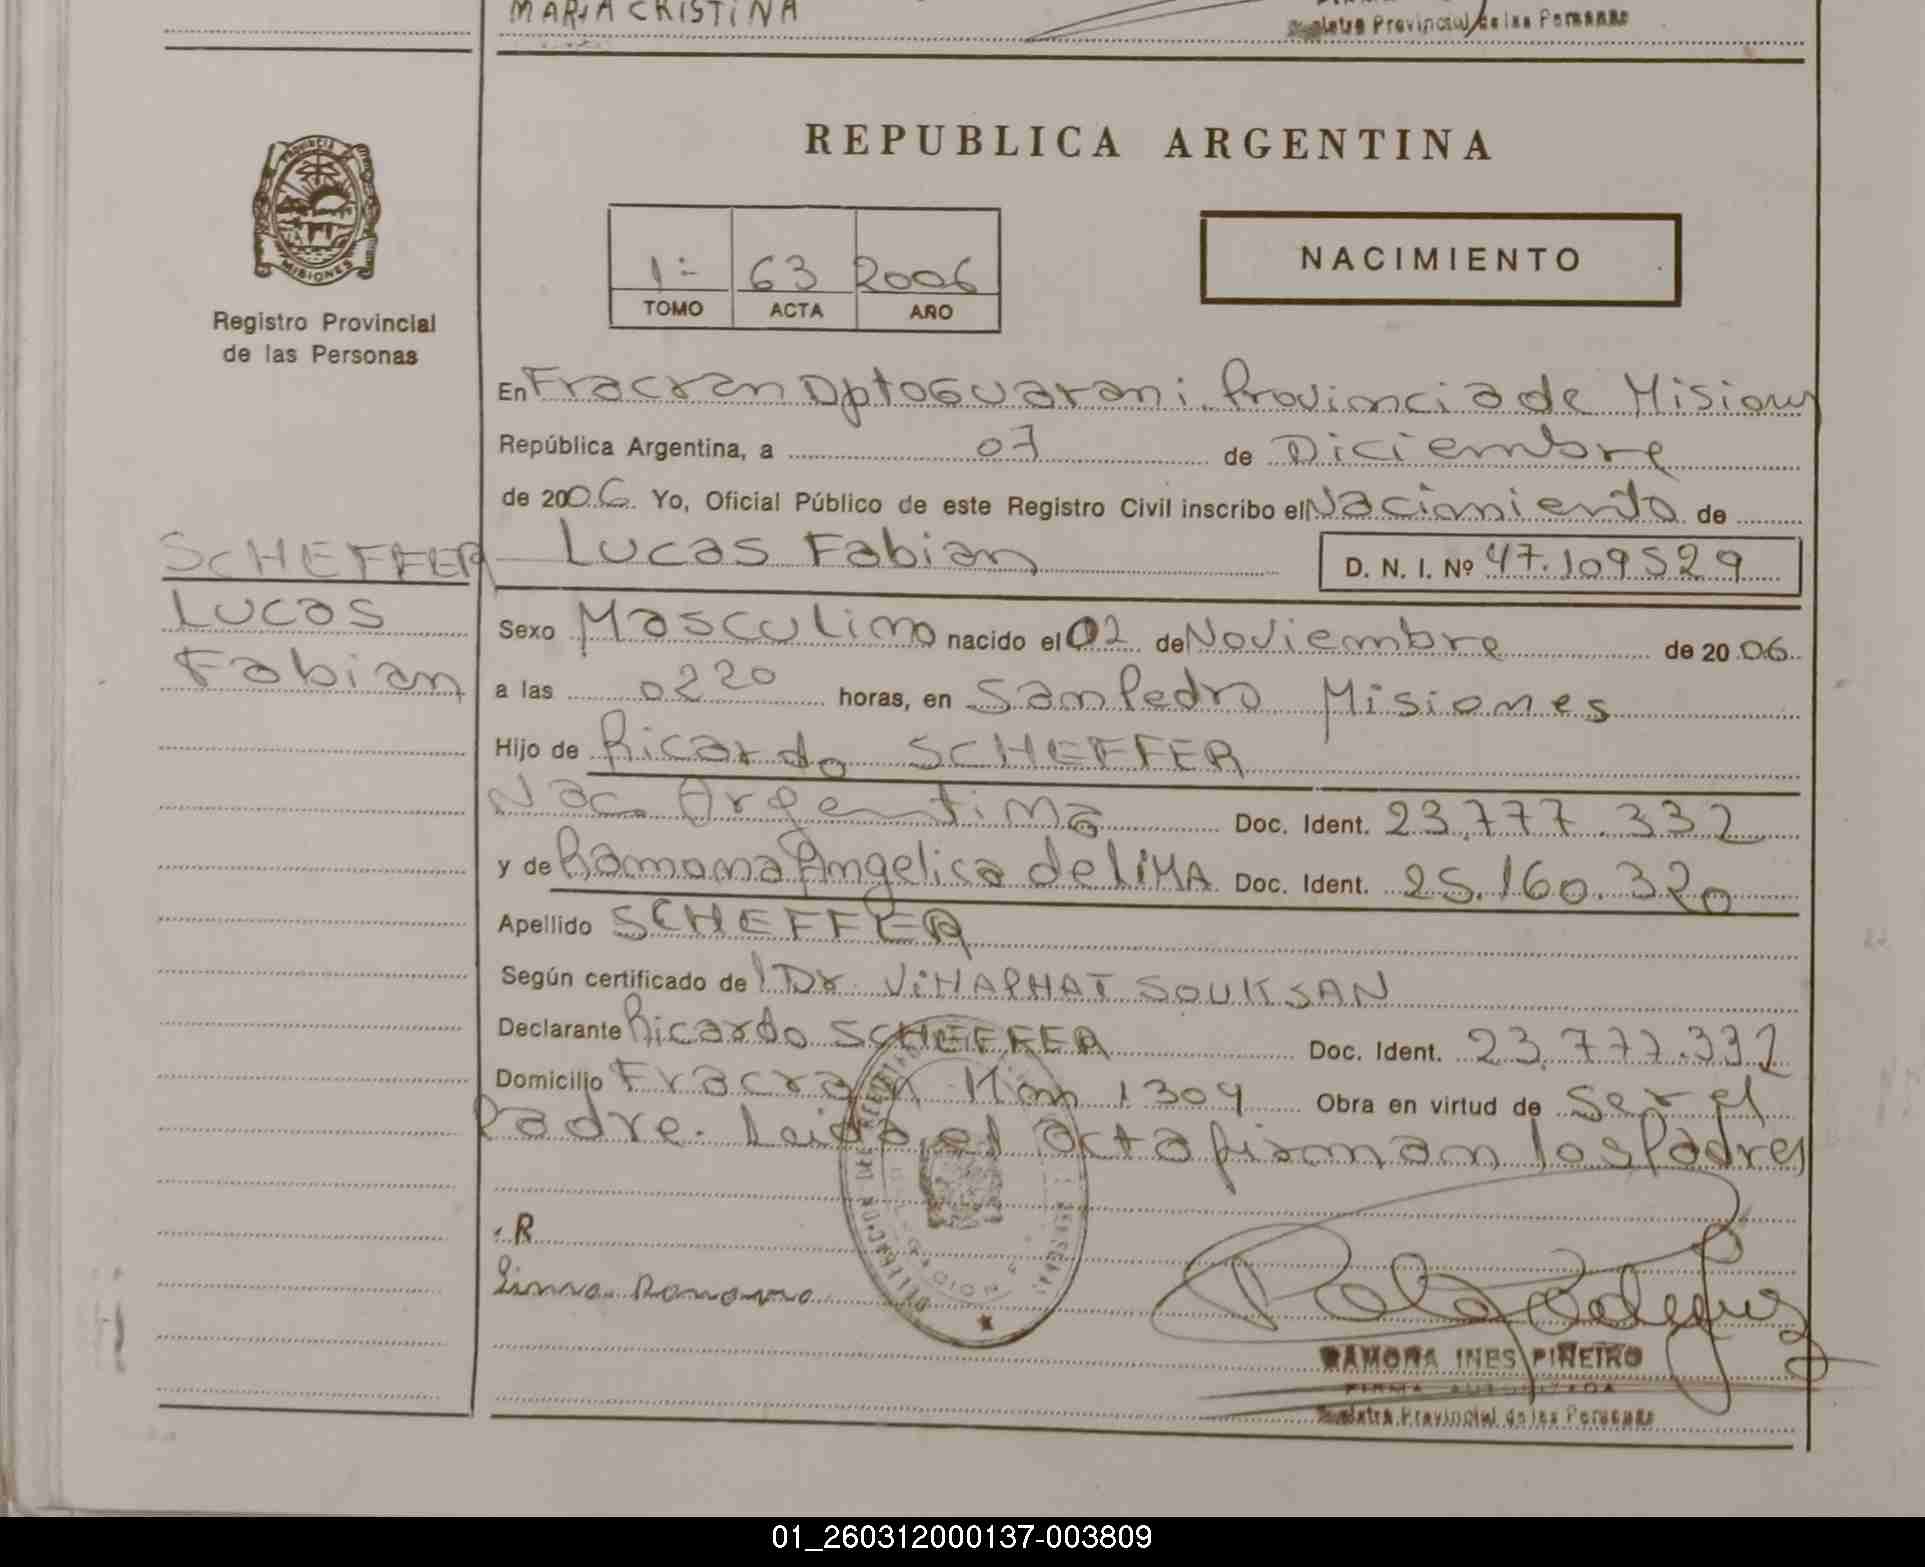 MARIA CRISTINA
Registro Provincial de las Personas
REPUBLICA ARGENTINA
PROVINCIA DE
MISIONES
Registro Provincial
de las Personas
1º 63 2006
TOMO ACTA AÑO
NACIMIENTO
En Fracran Dpto Guarani. Provincia de Misiones
República Argentina, a 07 de Diciembre
de 2006. Yo, Oficial Público de este Registro Civil inscribo el Nacimiento de
SCHEFFER
Lucas
Fabian
Lucas Fabian D. N. I. Nº 47.109529
Sexo Masculino nacido el 02 de Noviembre de 2006
a las 0220 horas, en San Pedro Misiones
Hijo de Ricardo SCHEFFER
Nac. Argentina Doc. Ident. 23.777.332
y de Ramona Angelica de LiMA Doc. Ident. 25.160.320
Apellido SCHEFFER
Según certificado de Dr. ViHAPHAT SOUKSAN
Declarante Ricardo SCHEFFER Doc. Ident. 23.777.332
Domicilio Fracran Km 1304 Obra en virtud de Ser el
Padre. Leida el acta firman los Padres
R
Lima Ramona
RAMONA INES PIÑEIRO
FIRMA AUTORIZADA
Registro Provincial de las Personas
01_260312000137-003809